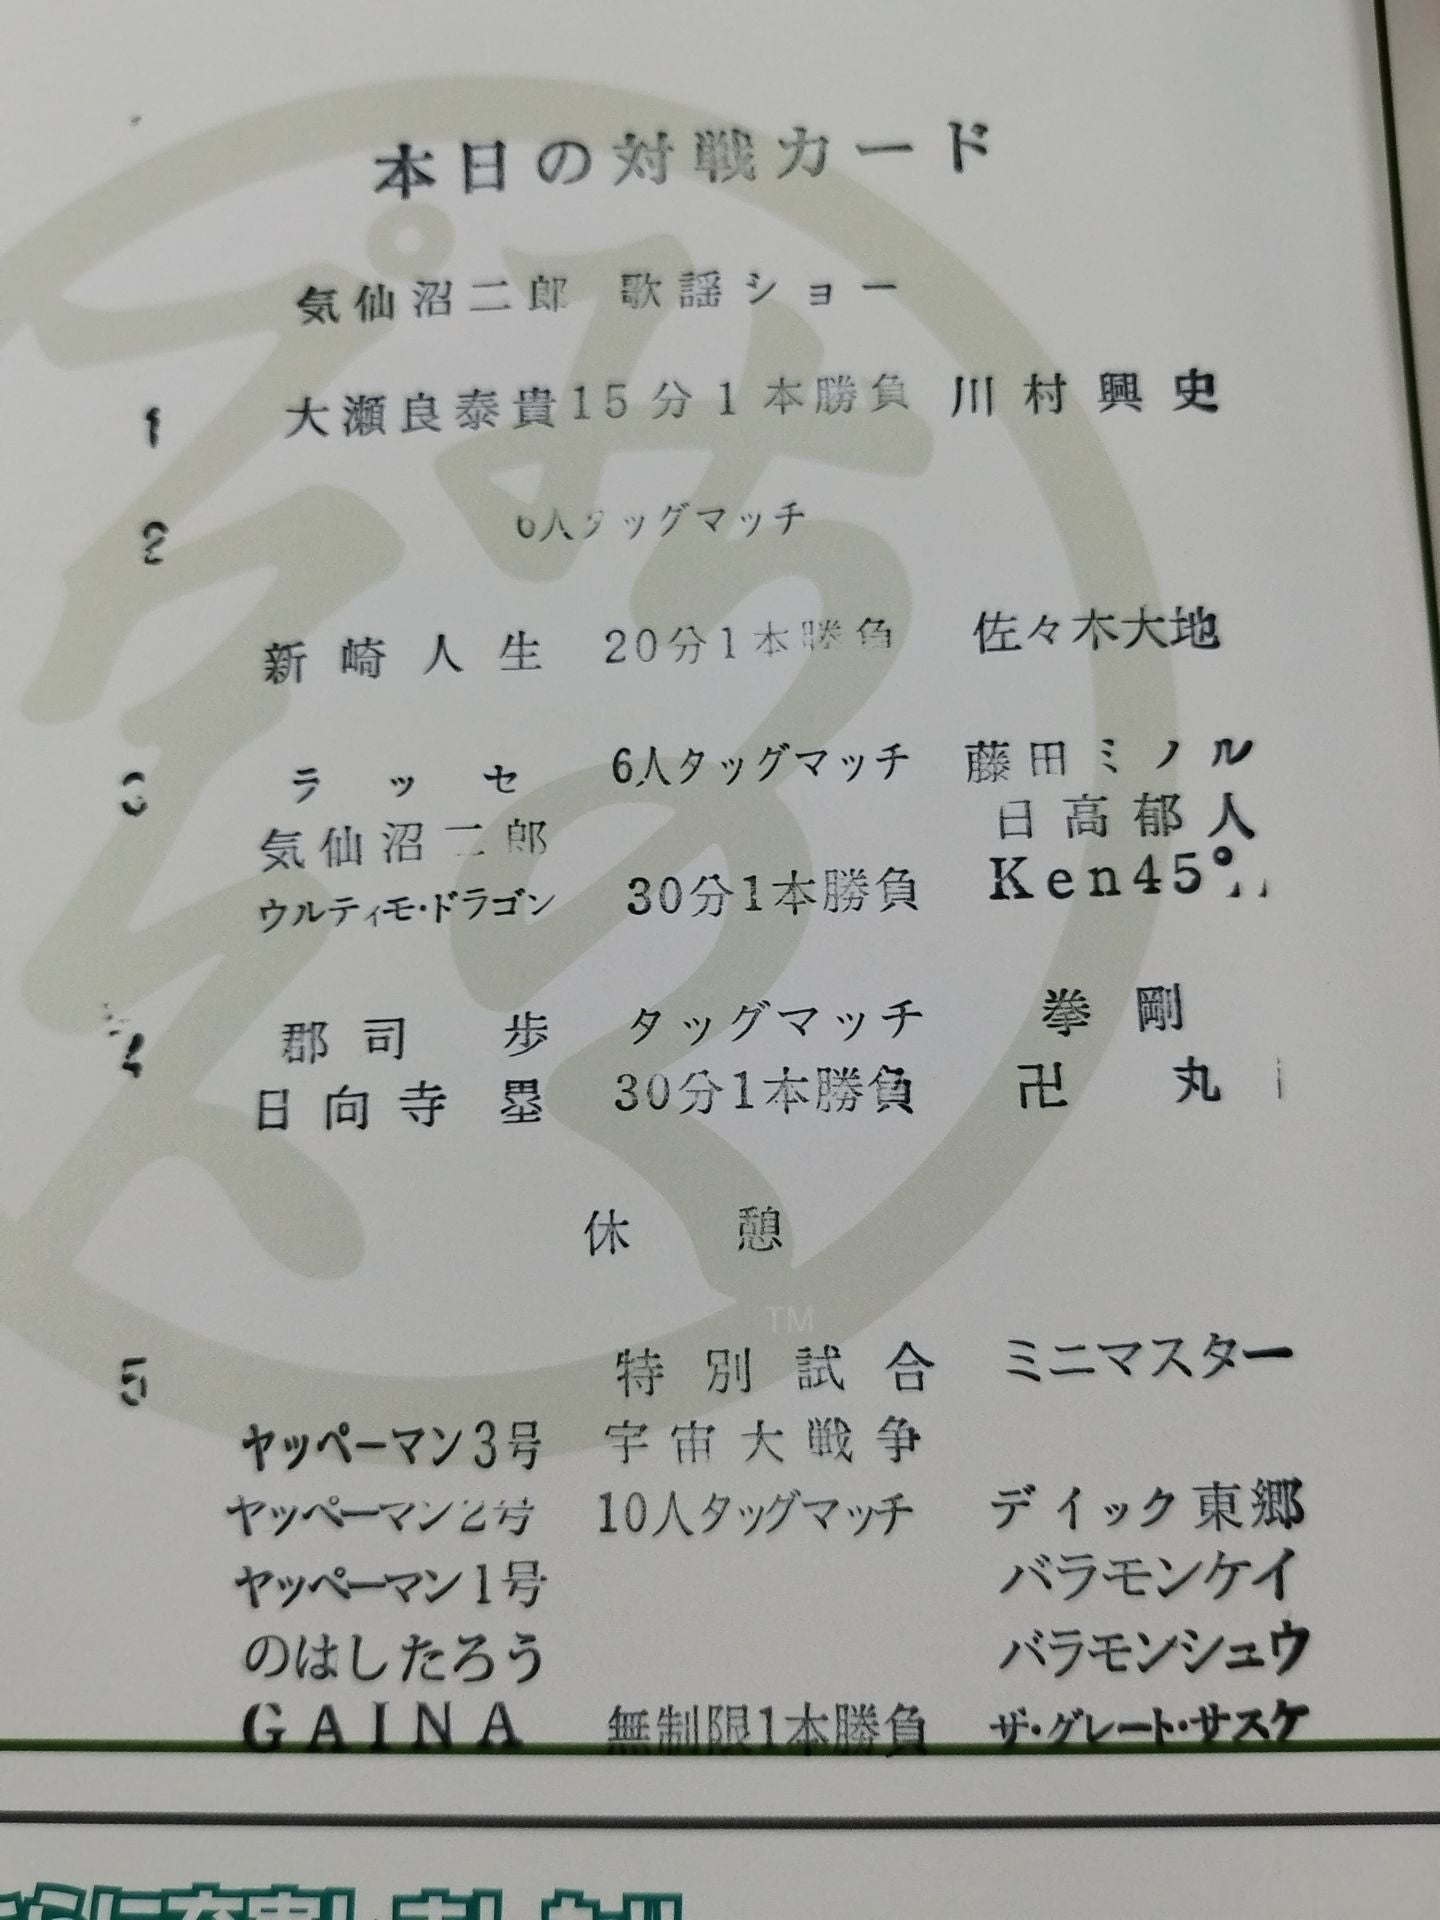 本日の対戦カード
気仙沼二郎 歌謡ショー
1 大瀬良泰貴 15分1本勝負 川村興史
2 6人タッグマッチ
新崎人生 20分1本勝負 佐々木大地
3 ラッセ 6人タッグマッチ 藤田ミノル
気仙沼二郎 日高郁人
ウルティモ・ドラゴン 30分1本勝負 Ken45°
4 郡司歩 タッグマッチ 拳剛
日向寺塁 30分1本勝負 卍丸
休憩
TM
5 特別試合 ミニマスター
ヤッペーマン3号 宇宙大戦争
ヤッペーマン2号 10人タッグマッチ ディック東郷
ヤッペーマン1号 バラモンケイ
のはしたろう バラモンシュウ
GAINA 無制限1本勝負 ザ・グレート・サスケ